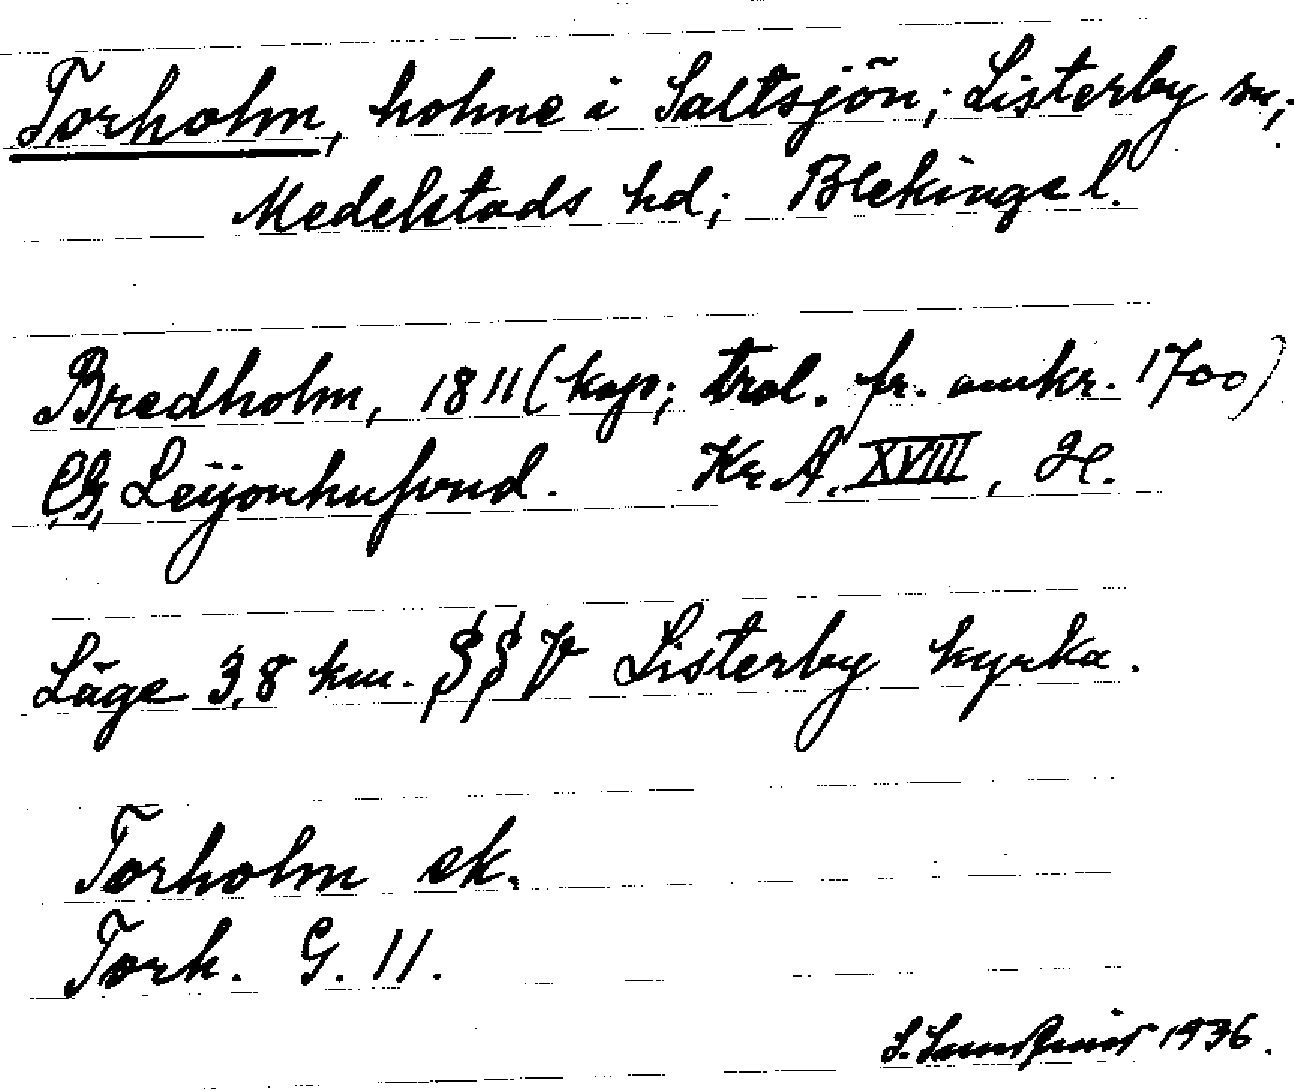 Torholm, holme i Saltsjön; Listerby sn;
Medelstads hd; Blekinge l.
Bredholm, 1811 (kop; trol. fr. omkr. 1700)
C.G. Leijonhufvud. Kr. A. XVIII, 
Läge 3,8 km. SSV Listerby kyrka.
Torholm ek.
Torh. G. 11.
S. 1936.